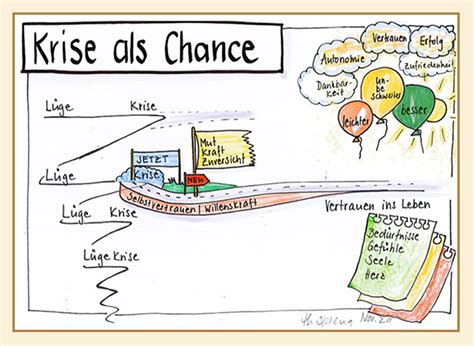 Krise als Chance
Vertrauen
Erfolg
Autonomie
Zufriedenheit
Dankbarkeit
un-
be
schwerter
leichter
besser
Lüge Krise
Lüge
JETZT
Krise
NEU
Mut
Kraft
Zuversicht
Selbstvertrauen | Willenskraft
Lüge Krise
Lüge Krise
Vertrauen ins Leben
Bedürfnisse
Gefühle
Seele
Herz
Nov. 20